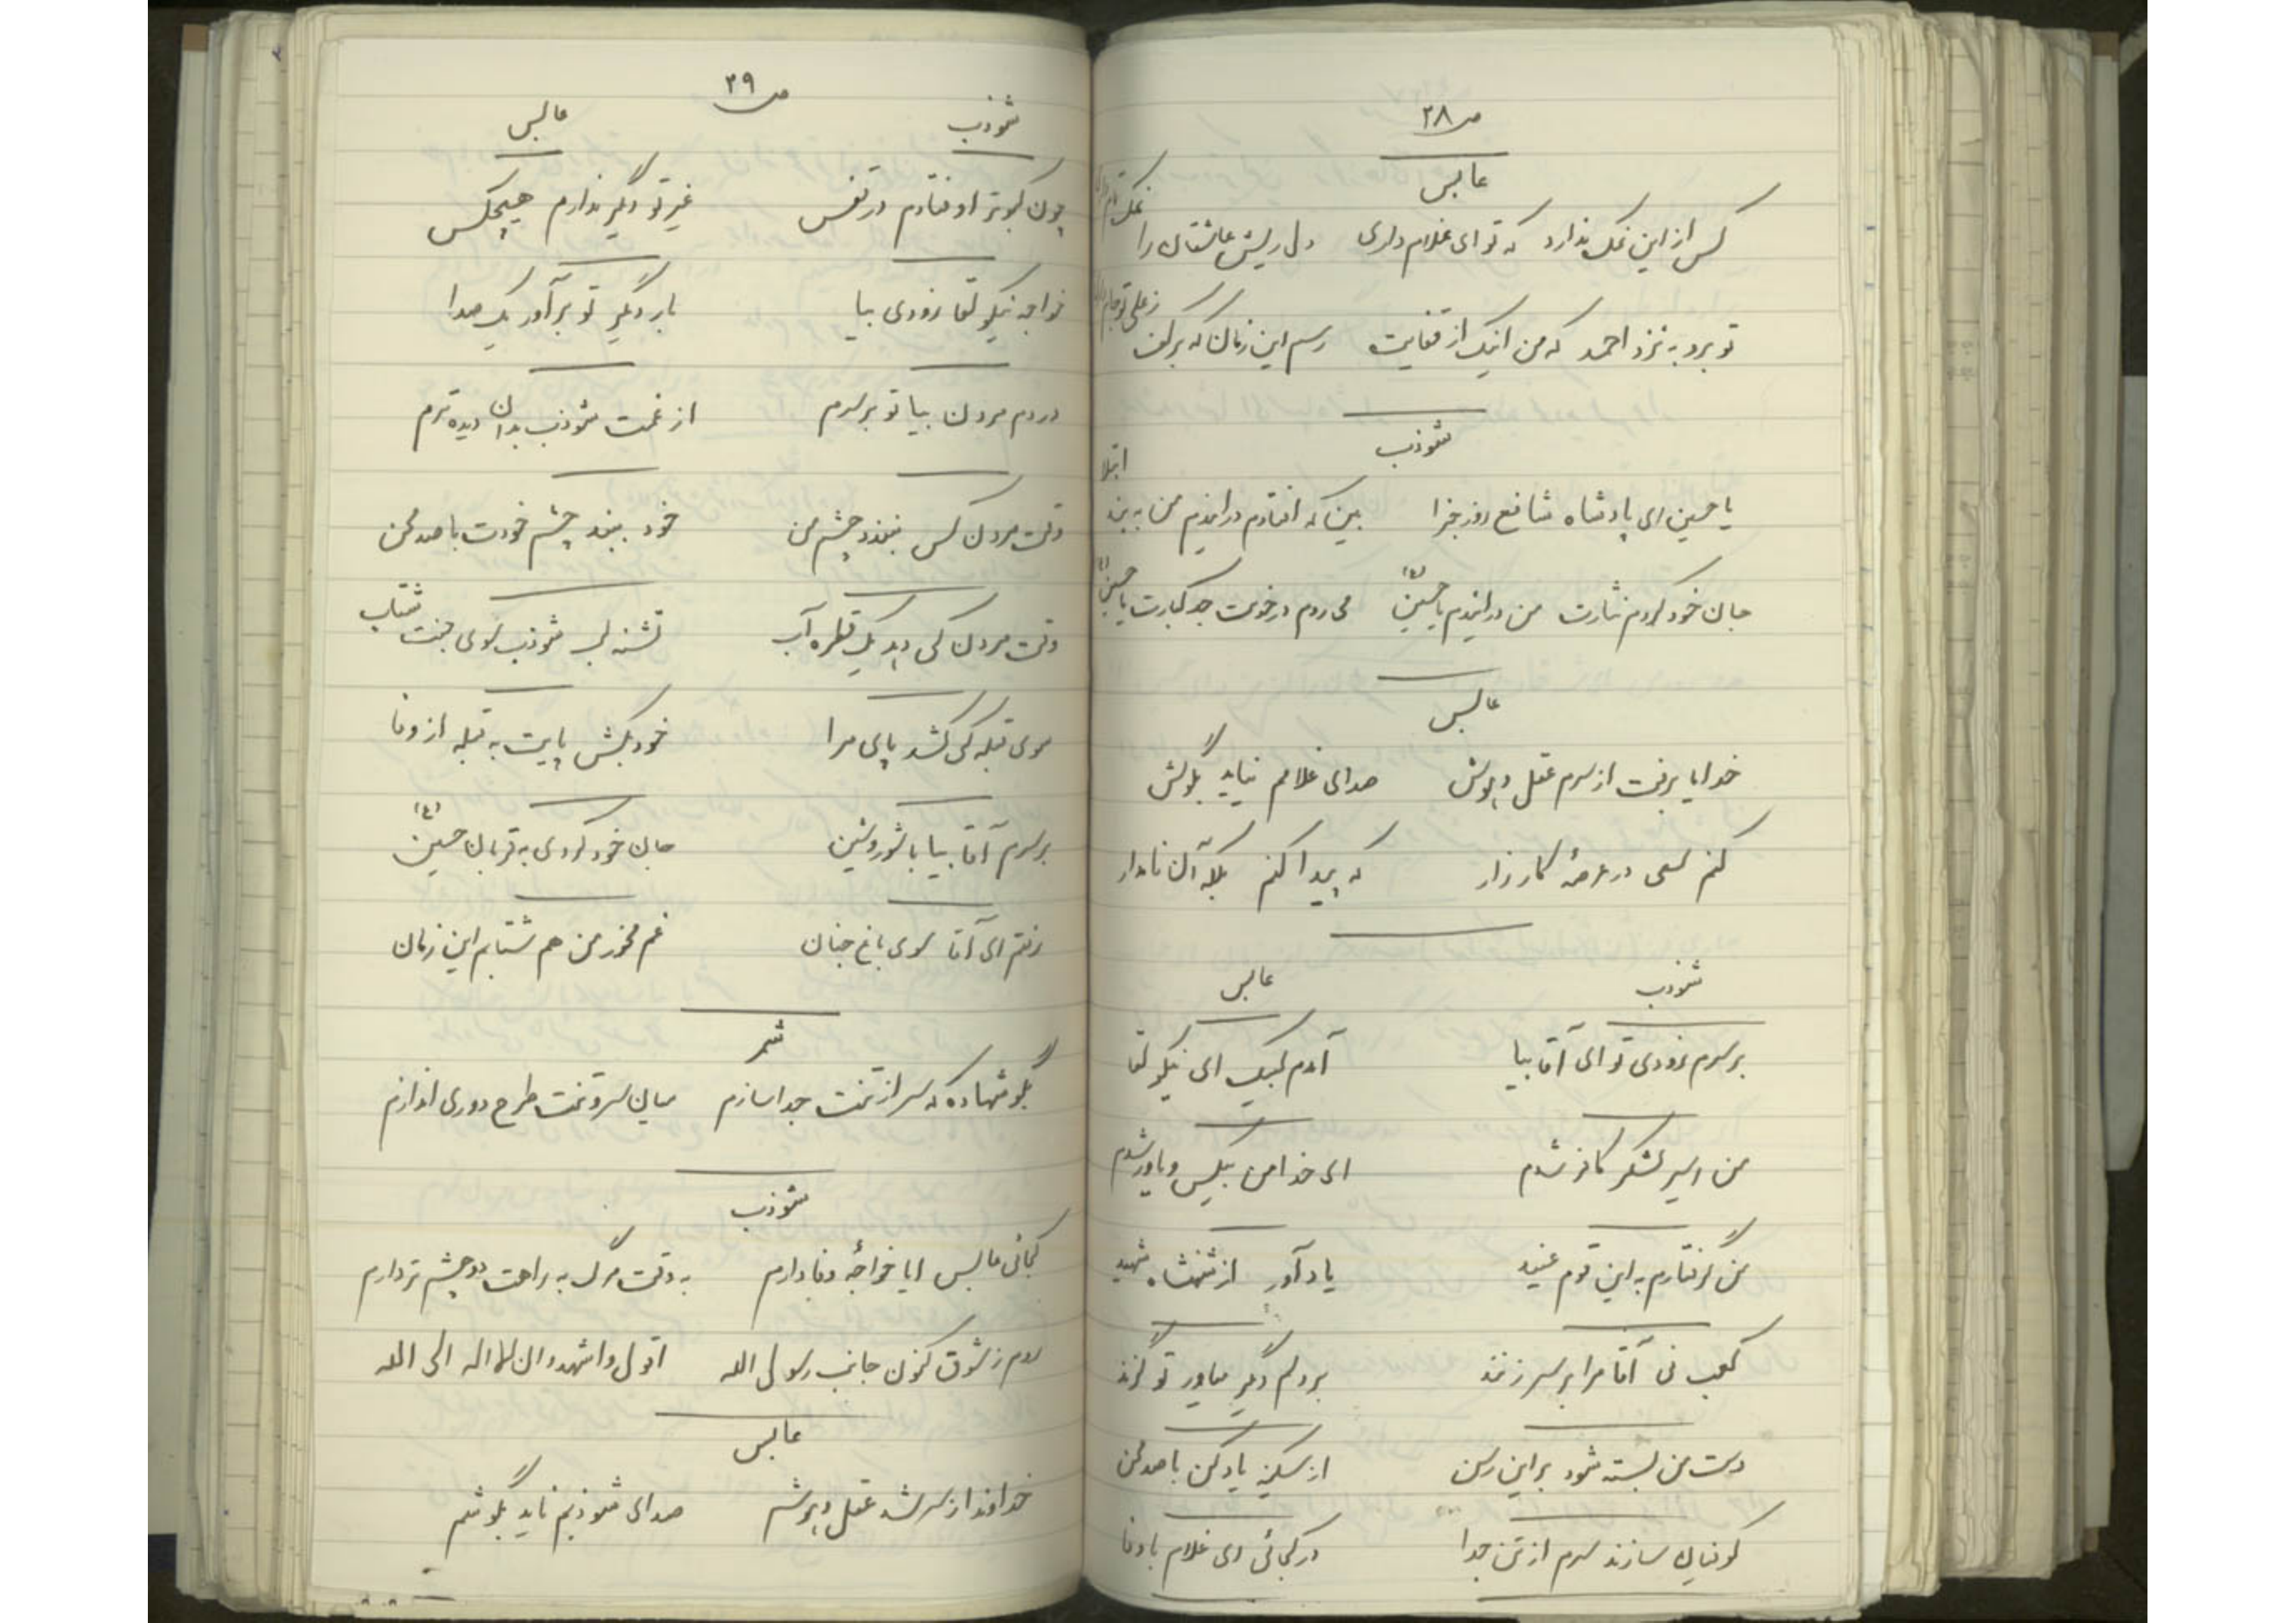 ص ۲۸
عابس
کس از این نمک ندارد که تو ای غلام داری دل ریش عاشقان را نمک
تو برو به نزد احمد که من اینک از قفایت رسم این زمان که بر کف ز علی تو جام
شوذب
یا حسین ای پادشاه شافع روز جزا بین که افتادم در این دم من به بند ابتلا
جان خود کردم نثارت من در این دم یا حسین (ع) می روم در خدمت جد کبارت یا حسین (ع)
عابس
خدایا برفت از سرم عقل و هوش صدای غلامم نیاید بگوش
کنم سعی در عرصهٔ کارزار که پیدا کنم بلکه آن نامدار
شوذب عابس
بر سرم بزودی تو ای آقا بیا آمدم لبیک ای نیکو لقا
من اسیر لشکر کافر شدم ای خدا من بیکس و یاور شدم
من گرفتارم به این قوم عنید یاد آور از شهنشاه شهید
کعب نی آقا مرا بر سر زنند بر دلم دیگر میاور تو گزند
دست من بسته شود بر این رسن از سکینه یاد کن با صد محن
کوفیان سازند سرم از تن جدا در کجائی ای غلام با وفا
ص ۲۹
شوذب عابس
چون کبوتر اوفتادم در قفس غیر تو دیگر ندارم هیچکس
خواجه نیکو لقا زودی بیا بار دیگر تو برآور یک صدا
در دم مردن بیا تو بر سرم از غمت شوذب بدان دیده ترم
وقت مردن کس نبندد چشم من خود ببند چشم خودت با صد محن
وقت مردن کی دهد یک قطره آب تشنه لب شوذب سوی جنت شتاب
سوی قبله کی کشد پای مرا خود بکش پایت به قبله از وفا
بر سرم آقا بیا با شور و شین جان خود کردی به قربان حسین (ع)
رفتم ای آقا سوی باغ جنان غم مخور من هم شتابم این زمان
شمر
بگو شهاده که سر از تنت جدا سازم میان سر و تنت طرح دوری اندازم
شوذب
کجائی عابس ایا خواجهٔ وفادارم به وقت مرگ به راهت دو چشم تر دارم
روم ز شوق کنون جانب رسول الله اقول و اشهد و ان لا اله الی الله
عابس
خداوندا ز سر شد عقل و هوشم صدای شوذبم ناید بگوشم